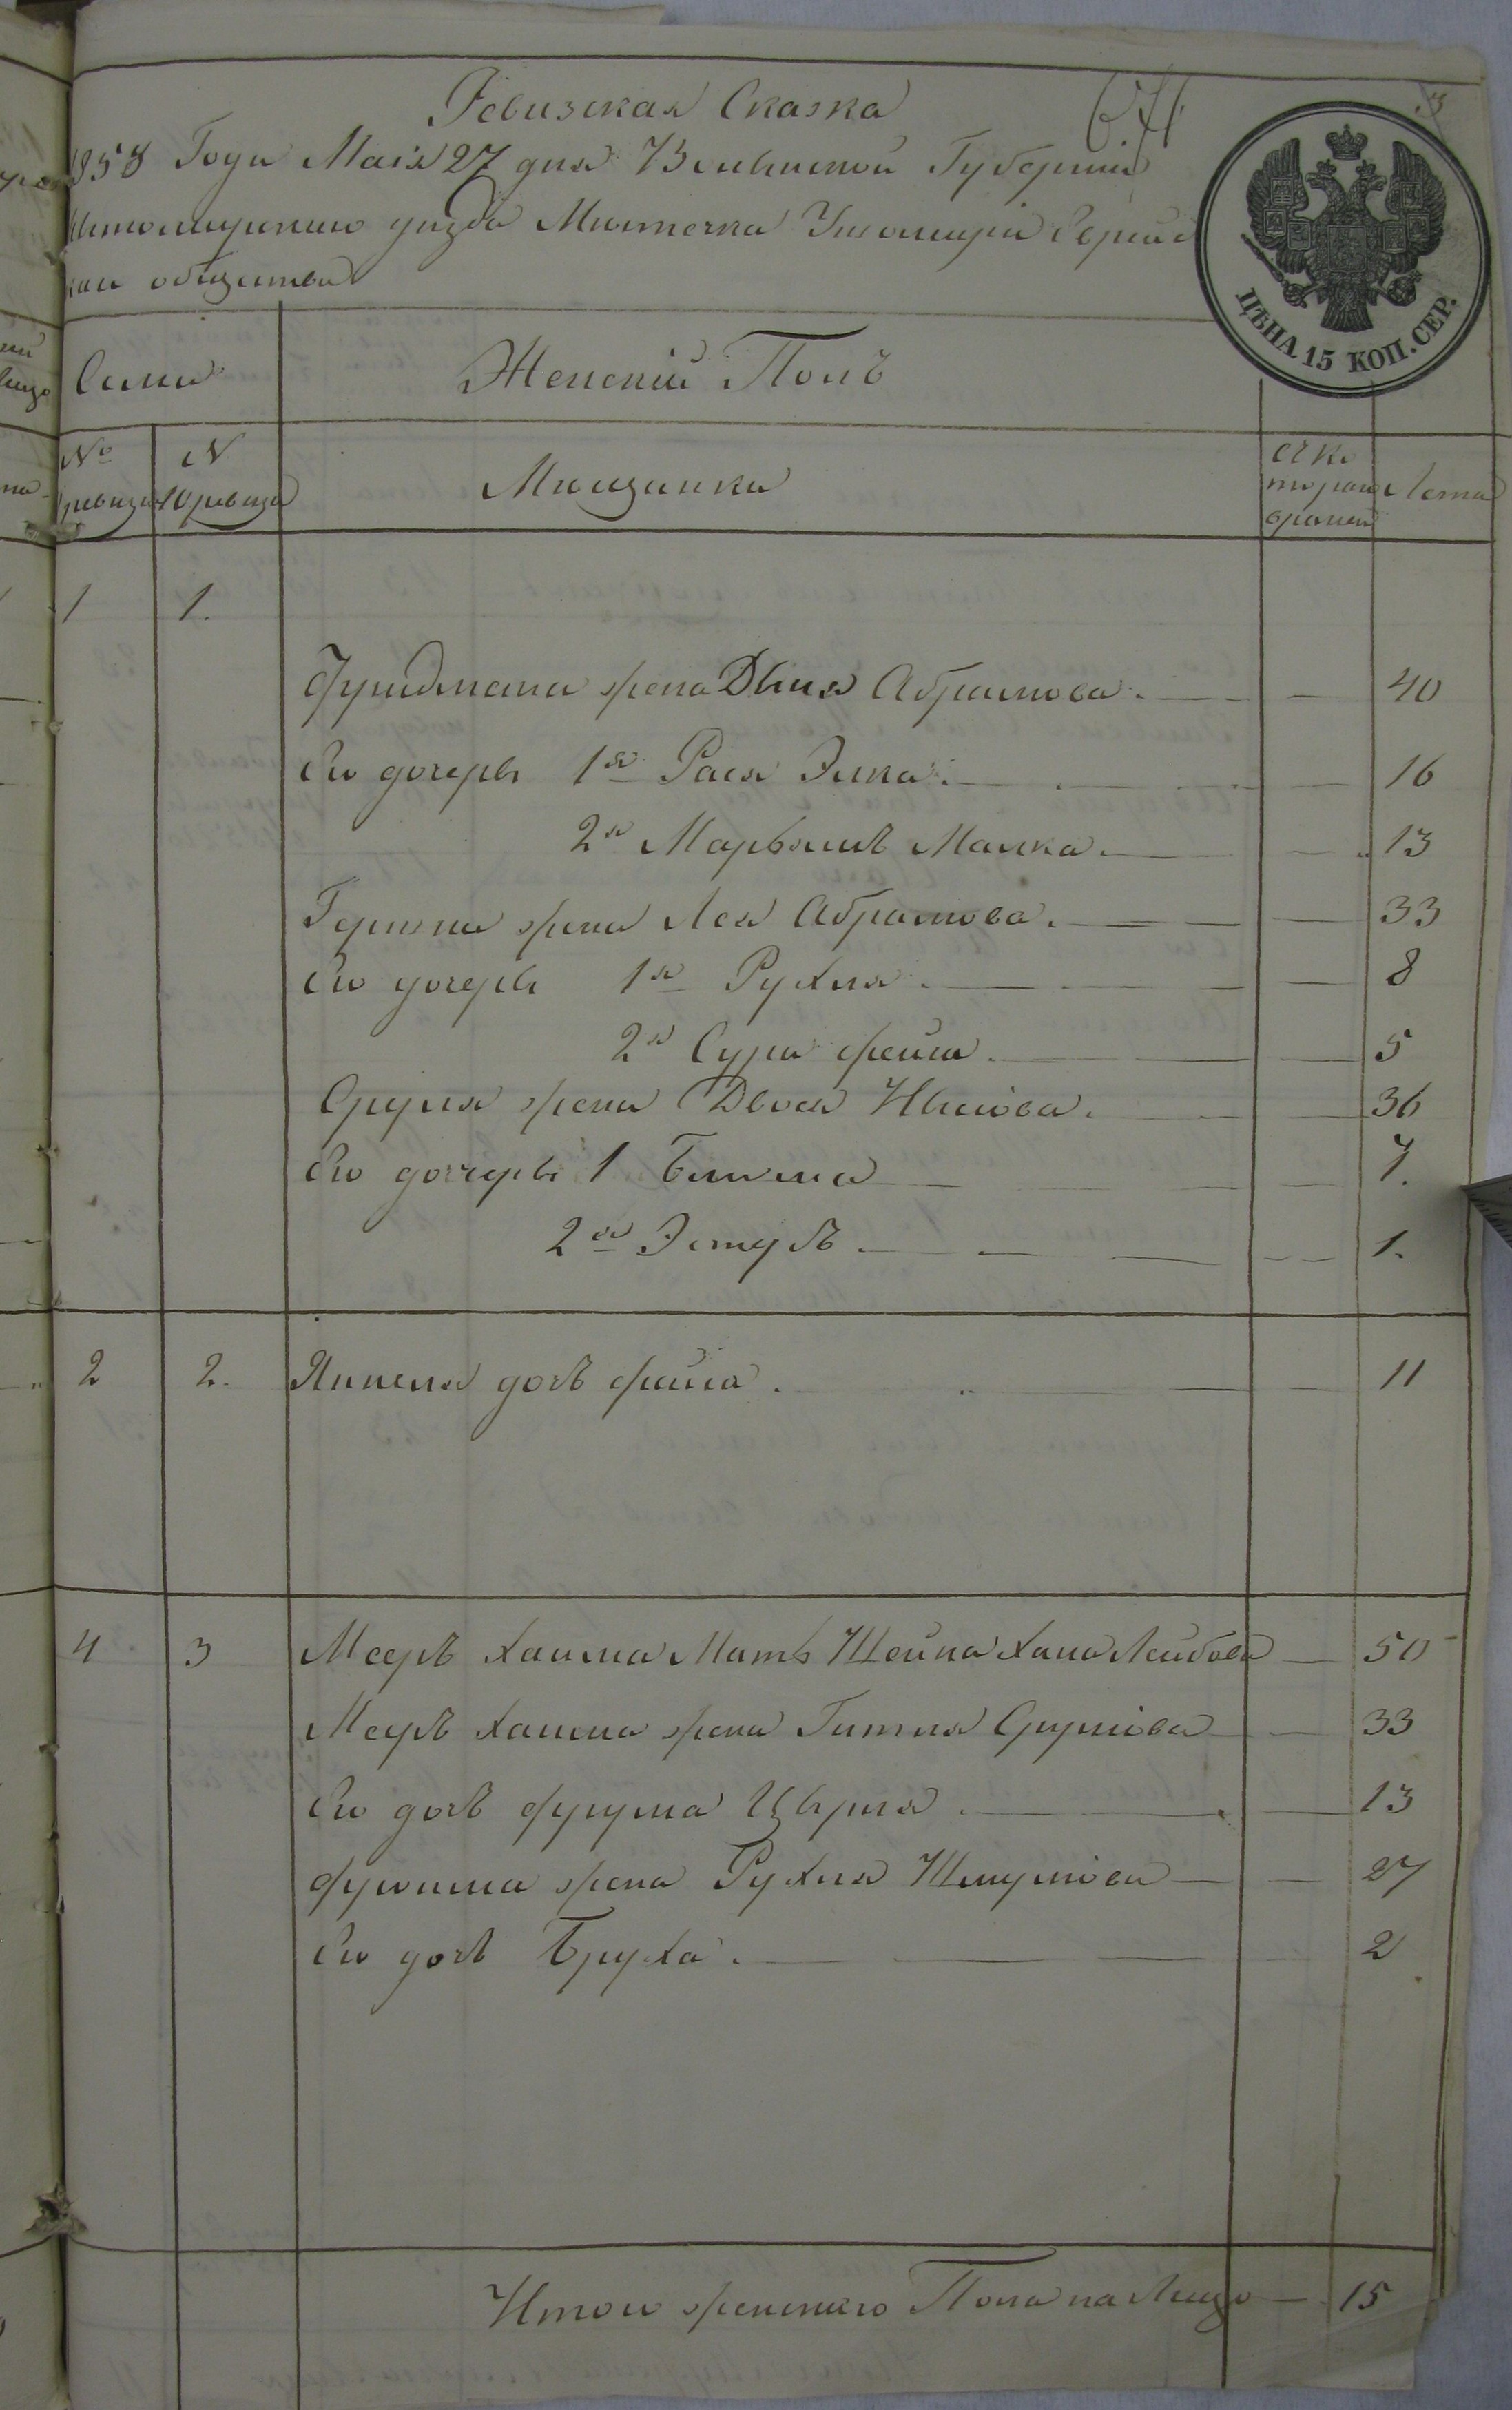 Ревизская Сказка
1858 Года Маія 27 дня Волынской Губерніи
Житомирскаго уезда Местечка Ушомира Еврейс
каго общества
671
3
ЦѢНА 15 КОП. СЕР.
Семьи
Женскій Полъ
№ ревизіи
N 10 ревизіи
Мещанки
съ ко
тораго
времени
Лета
1 1.
Фридмана жена Двися Абрамова. 40
Его дочери 1я Рася Элка. 16
2я Марьямъ Малка. 13
Гершка жена Лея Абрамова. 33
Его дочери 1я Рухля. 8
2я Сура фейга. 5
Сруля жена Двося Ицкова. 36
Его дочери 1 Блима 7.
2я Эстуръ. 1.
2 2. Янкеля дочъ фейга. 11
4 3 Мееръ Хаима Мать Шейна Хана Лейбова 50
Мееръ Хаима жена Гитля Срулiова 33
Его дочъ фрума Цырля. 13
фроима жена Рухля Шмулiова 27
Его дочъ Бруха. 2
Итого женскаго Пола на Лицо 15